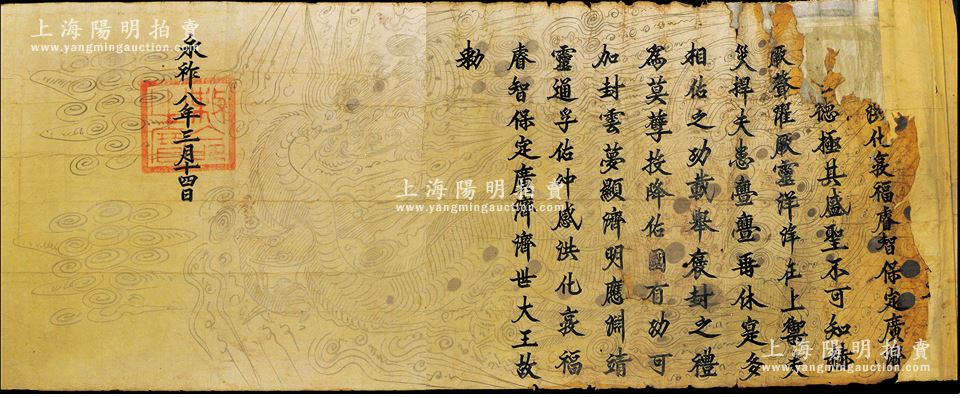 洪化裒福睿智保定廣濟
德極其盛聖不可知赫
厥聲濯厥靈洋洋在上禦夫
災捍夫患亹亹毋休寔多
相佑之功載舉褒封之禮
爲莫孽投降佑國有功可
加封雲夢顯濟明應淵靖
靈通孚佑仲感洪化裒福
睿智保定廣濟濟世大王故
勅
永祚八年三月十四日
上海陽明拍賣
www.yangmingauction.com
上海陽明拍賣
www.yangmingauction.com
上海陽明拍賣
www.yangmingauction.com